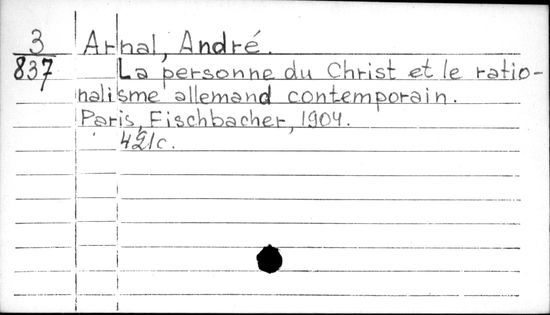 3 Arnal, André.
837 La personne du Christ et le ratio-
nalisme allemand contemporain.
Paris, Fischbacher, 1904.
421c.